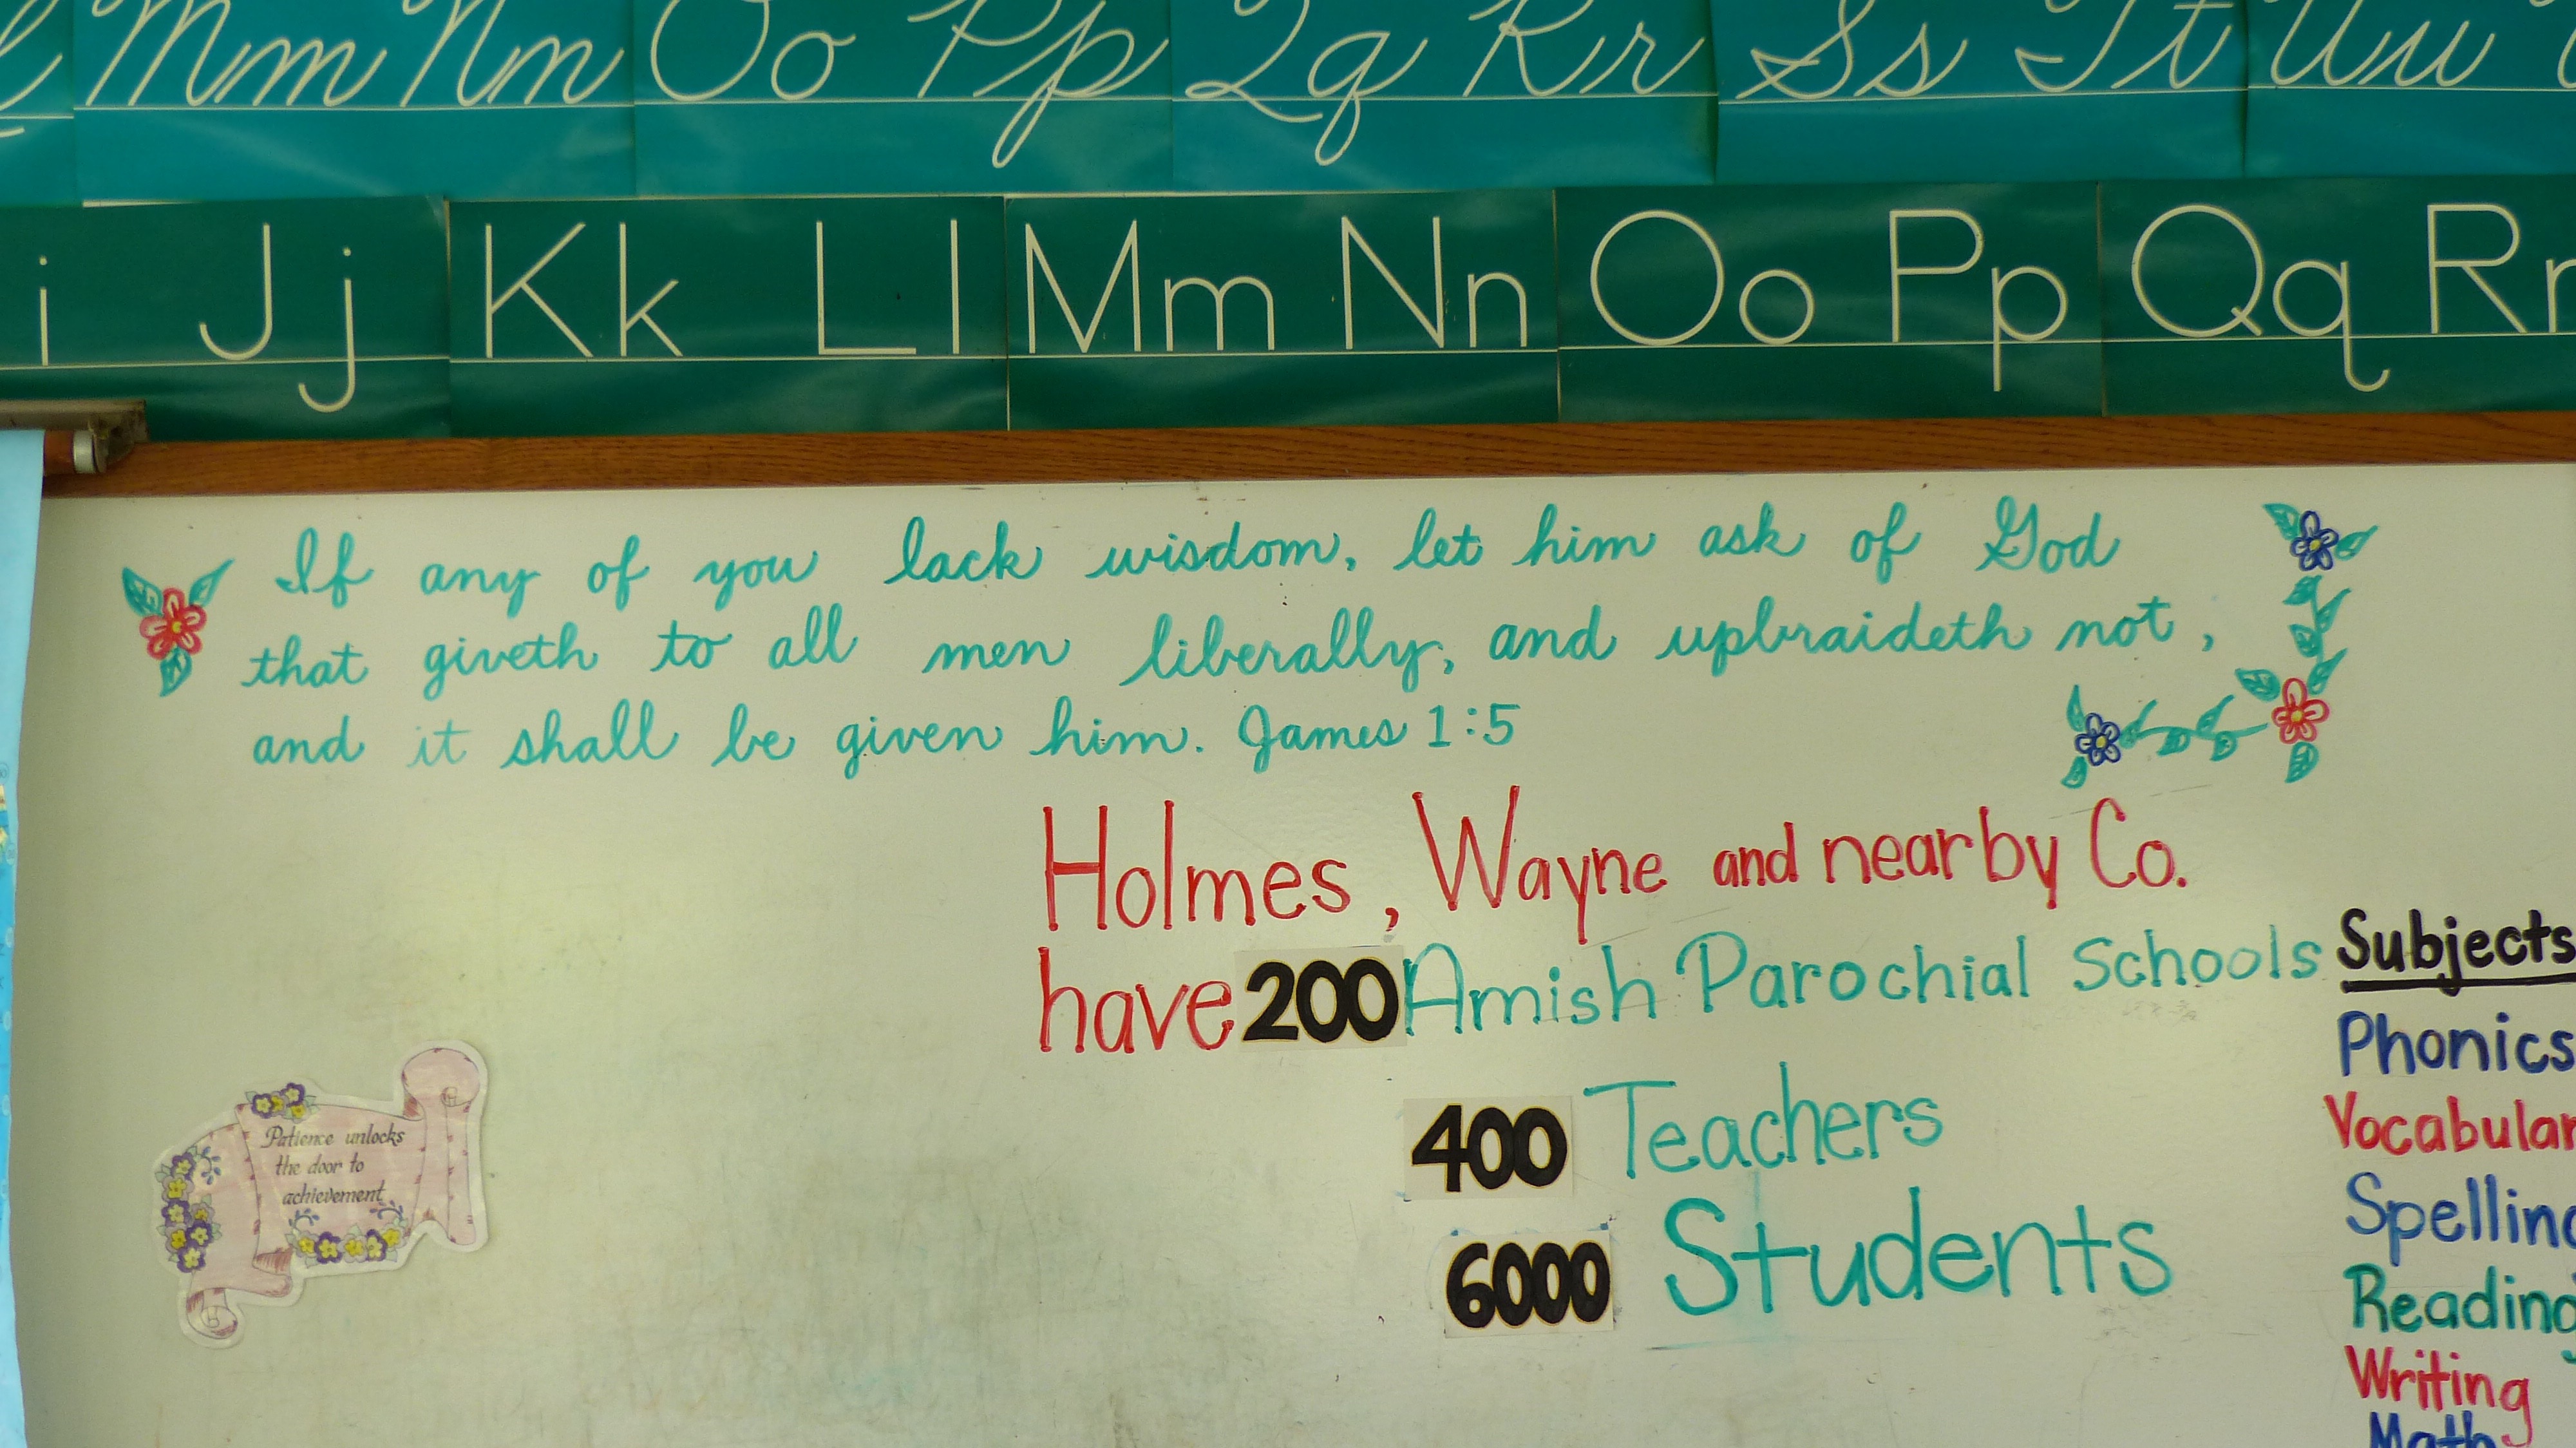 Mm Nn Oo Pp Qq Rr Ss Tt Uu
i Jj Kk Ll Mm Nn Oo Pp Qq Rr
If any of you lack wisdom, let him ask of God
that giveth to all men liberally, and upbraideth not,
and it shall be given him. James 1:5
Holmes, Wayne and nearby Co.
have 200 Amish Parochial Schools
400 Teachers
6000 Students
Patience unlocks
the door to
achievement
Subjects
Phonics
Vocabular
Spelling
Reading
Writing
Math